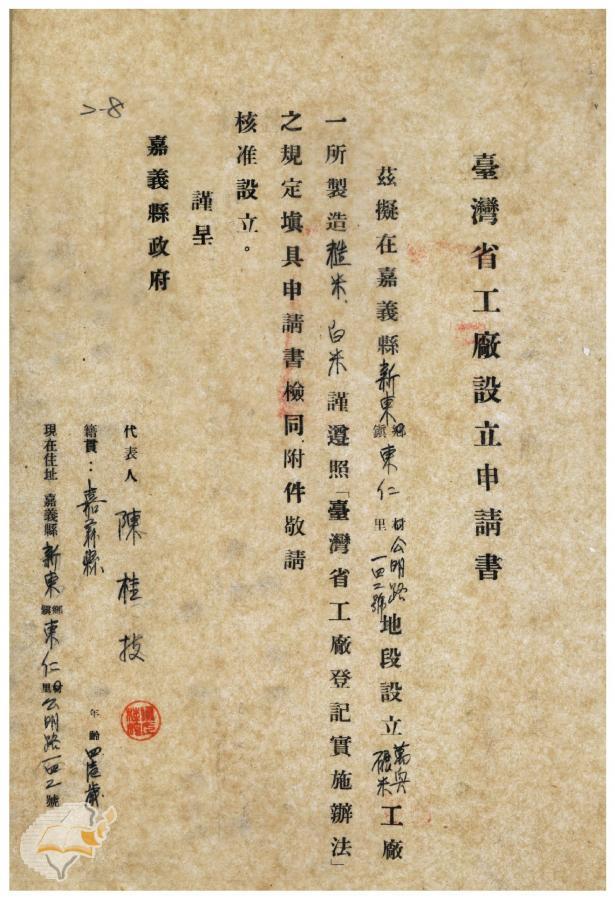 臺灣省工廠設立申請書
茲擬在嘉義縣新東鄉鎮東仁村里公明路一四二號地段設立萬興碾米工廠
一所製造糙米、白米謹遵照「臺灣省工廠登記實施辦法」
之規定填具申請書檢同附件敬請
核准設立。
謹呈
嘉義縣政府
代表人 陳桂枝
籍貫：嘉義縣 年齡四壹歲
現在住址 嘉義縣新東鄉鎮東仁村里公明路一四二號
2-8